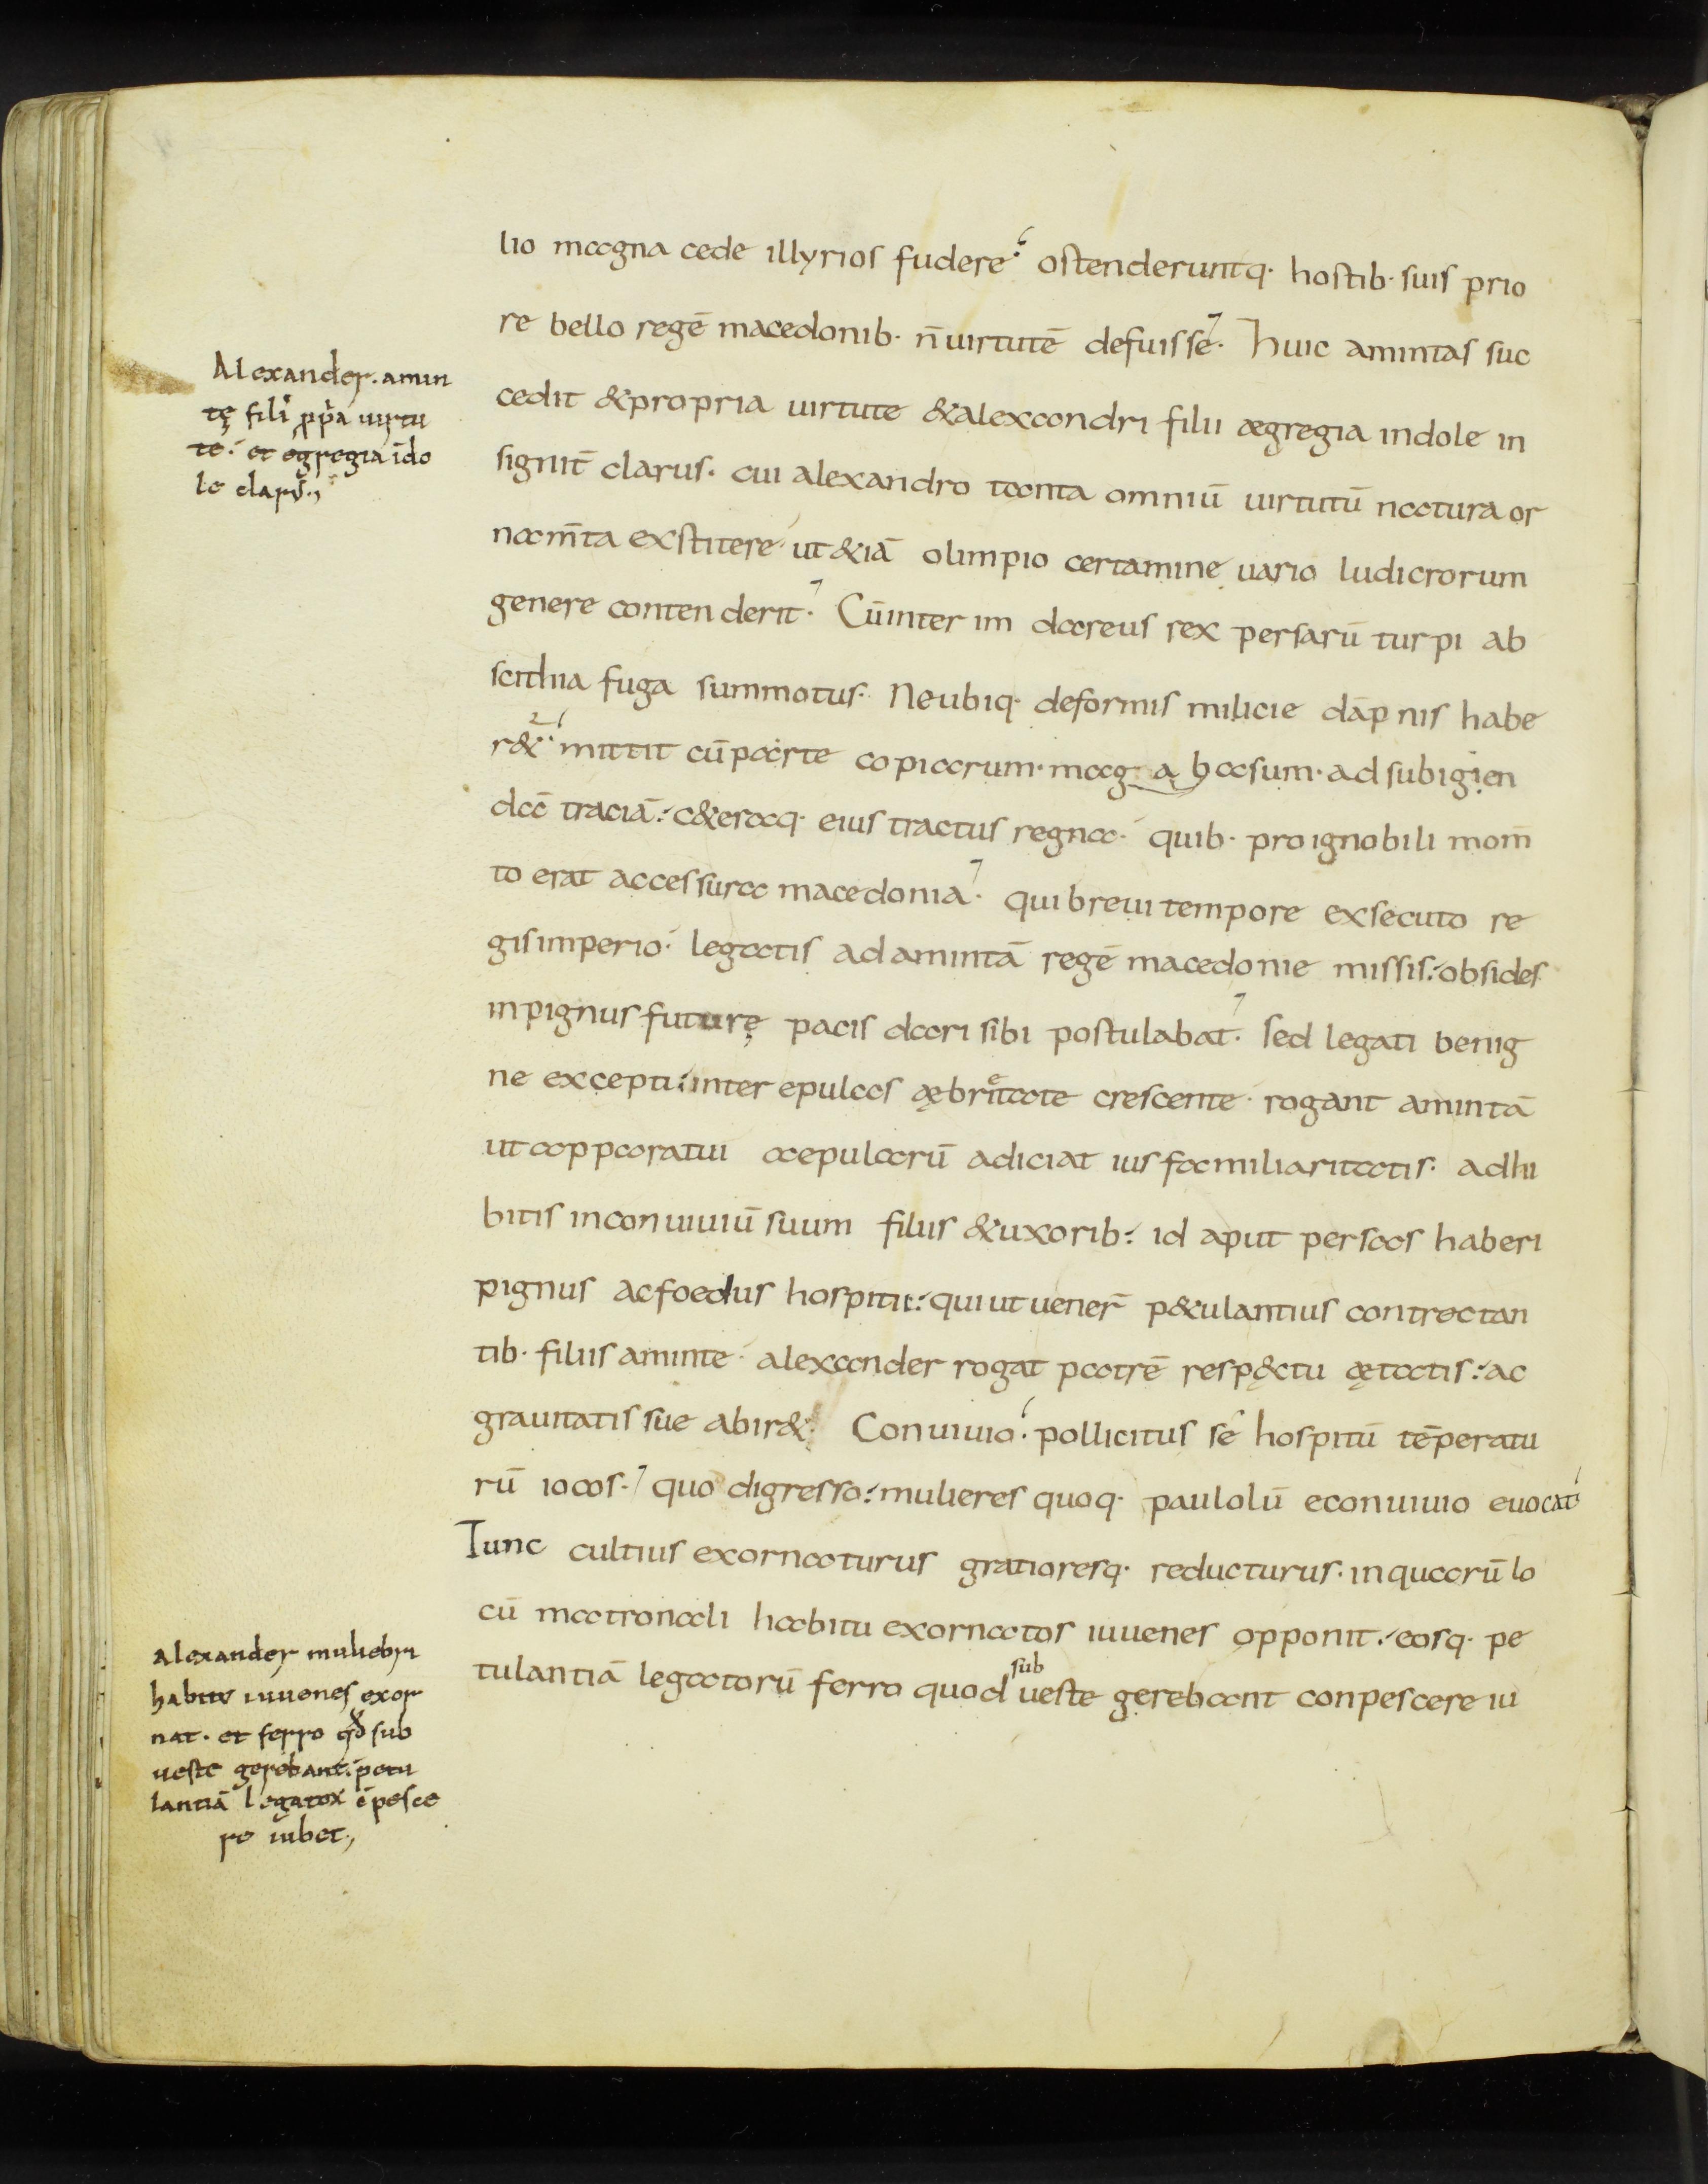 lio magna cede illyrios fudere. ostenderuntq. hostib. suis prio
re bello regē macedonib. n̄ uirtutē defuisse. Huic amintas suc
cedit & propria uirtute & alexandri filii ægregia indole in
signit̄ clarus. cui alexandro tanta omniū uirtutū natura or
nam̄ta exstitere ut &iā olimpio certamine uario ludicrorum
genere contenderit. Cū interim dareus rex persarū turpi ab
scithia fuga summotus. Ne ubiq. deformis milicie dāpnis habe
r& mittit cū parte copiarum. magabasum. ad subigien
dā traciā. c&eraq. eius tractus regna. quib. pro ignobili mom̄
to erat accessura macedonia. qui breui tempore exsecuto re
gis imperio. legatis ad amintā regē macedonie missis. obsides
in pignus futurę pacis dari sibi postulabat. sed legati benig
ne excepti. inter epulas ębrietate crescente. rogant amintā
ut apparatui aepularū adiciat ius familiaritatis. adhi
bitis in conuiuiū suum filiis & uxorib. id aput persas haberi
pignus ac foedus hospitii. qui ut uener̄ p&ulantius contrectan
tib. filiis aminte. alexander rogat patrē respęctu ętatis. ac
grauitatis sue abir&. Conuiuio. pollicitus se hospitū tēperatu
rū iocos. quo digresso. mulieres quoq. paulolū e conuiuio euocat
Tunc cultius exornaturus gratioresq. reducturus. in quarū lo
cū matronali habitu exornatos iuuenes opponit. eosq. pe
tulantiā legatorū ferro quod sub ueste gerebant conpescere iu
Alexander. amin
tę fili' ꝓpa uirtu
te. et egregia īdo
le clarus.,
alexander muliebri
habitu iuuenes exor
nat. et ferro qđ sub
ueste gerebant. petu
lantiā legatoꝝ cpesce
re iubet.,